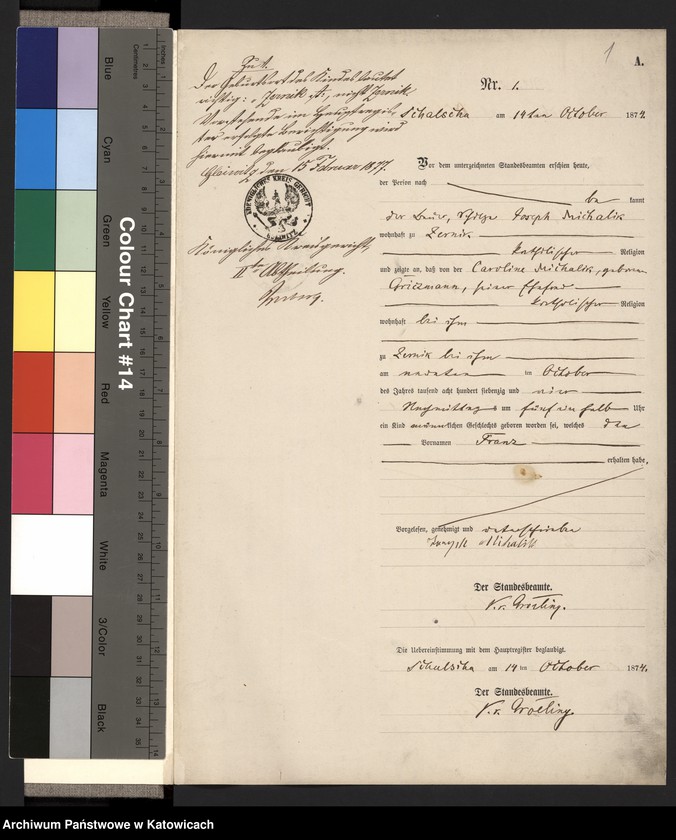 Colour Chart #14
Blue
Cyan
Green
Yellow
Red
Magenta
White
3/Color
Black
Centimetres
Inches
1
A.
Nr. 1.
Schalscha am 14ten October 1874.
Der Geburtsort des Kindes lautet
richtig: Zernik, nicht
Vorstehende im Hauptregis-
ter erfolgte Berichtigung wird
hiermit beglaubigt.
Gleiwitz den 15 Februar 1877.
KOENIGLICHES KREIS GERICHT
GLEIWITZ
Königliches Kreisgericht,
IIte Abtheilung.
Vor dem unterzeichneten Standesbeamten erschien heute,
der Person nach
be kannt
der Bauer, Joseph Michalik
wohnhaft zu Zernik
katholischer Religion
und zeigte an, daß von der Caroline Michalik, geborene
seiner Ehefrau
katholischer Religion
wohnhaft bei ihm
zu Zernik bei ihm
am neunten ten October
des Jahres tausend acht hundert siebenzig und vier
Nachmittags um fünf ein halb Uhr
ein Kind männlichen Geschlechts geboren worden sei, welches den
Vornamen Franz
erhalten habe.
Vorgelesen, genehmigt und unterschrieben
Michalik
Der Standesbeamte.
V. v. Groeling.
Die Uebereinstimmung mit dem Hauptregister beglaubigt.
Schalscha am 14 ten October 1874.
Der Standesbeamte.
V. v. Groeling.
Archiwum Państwowe w Katowicach